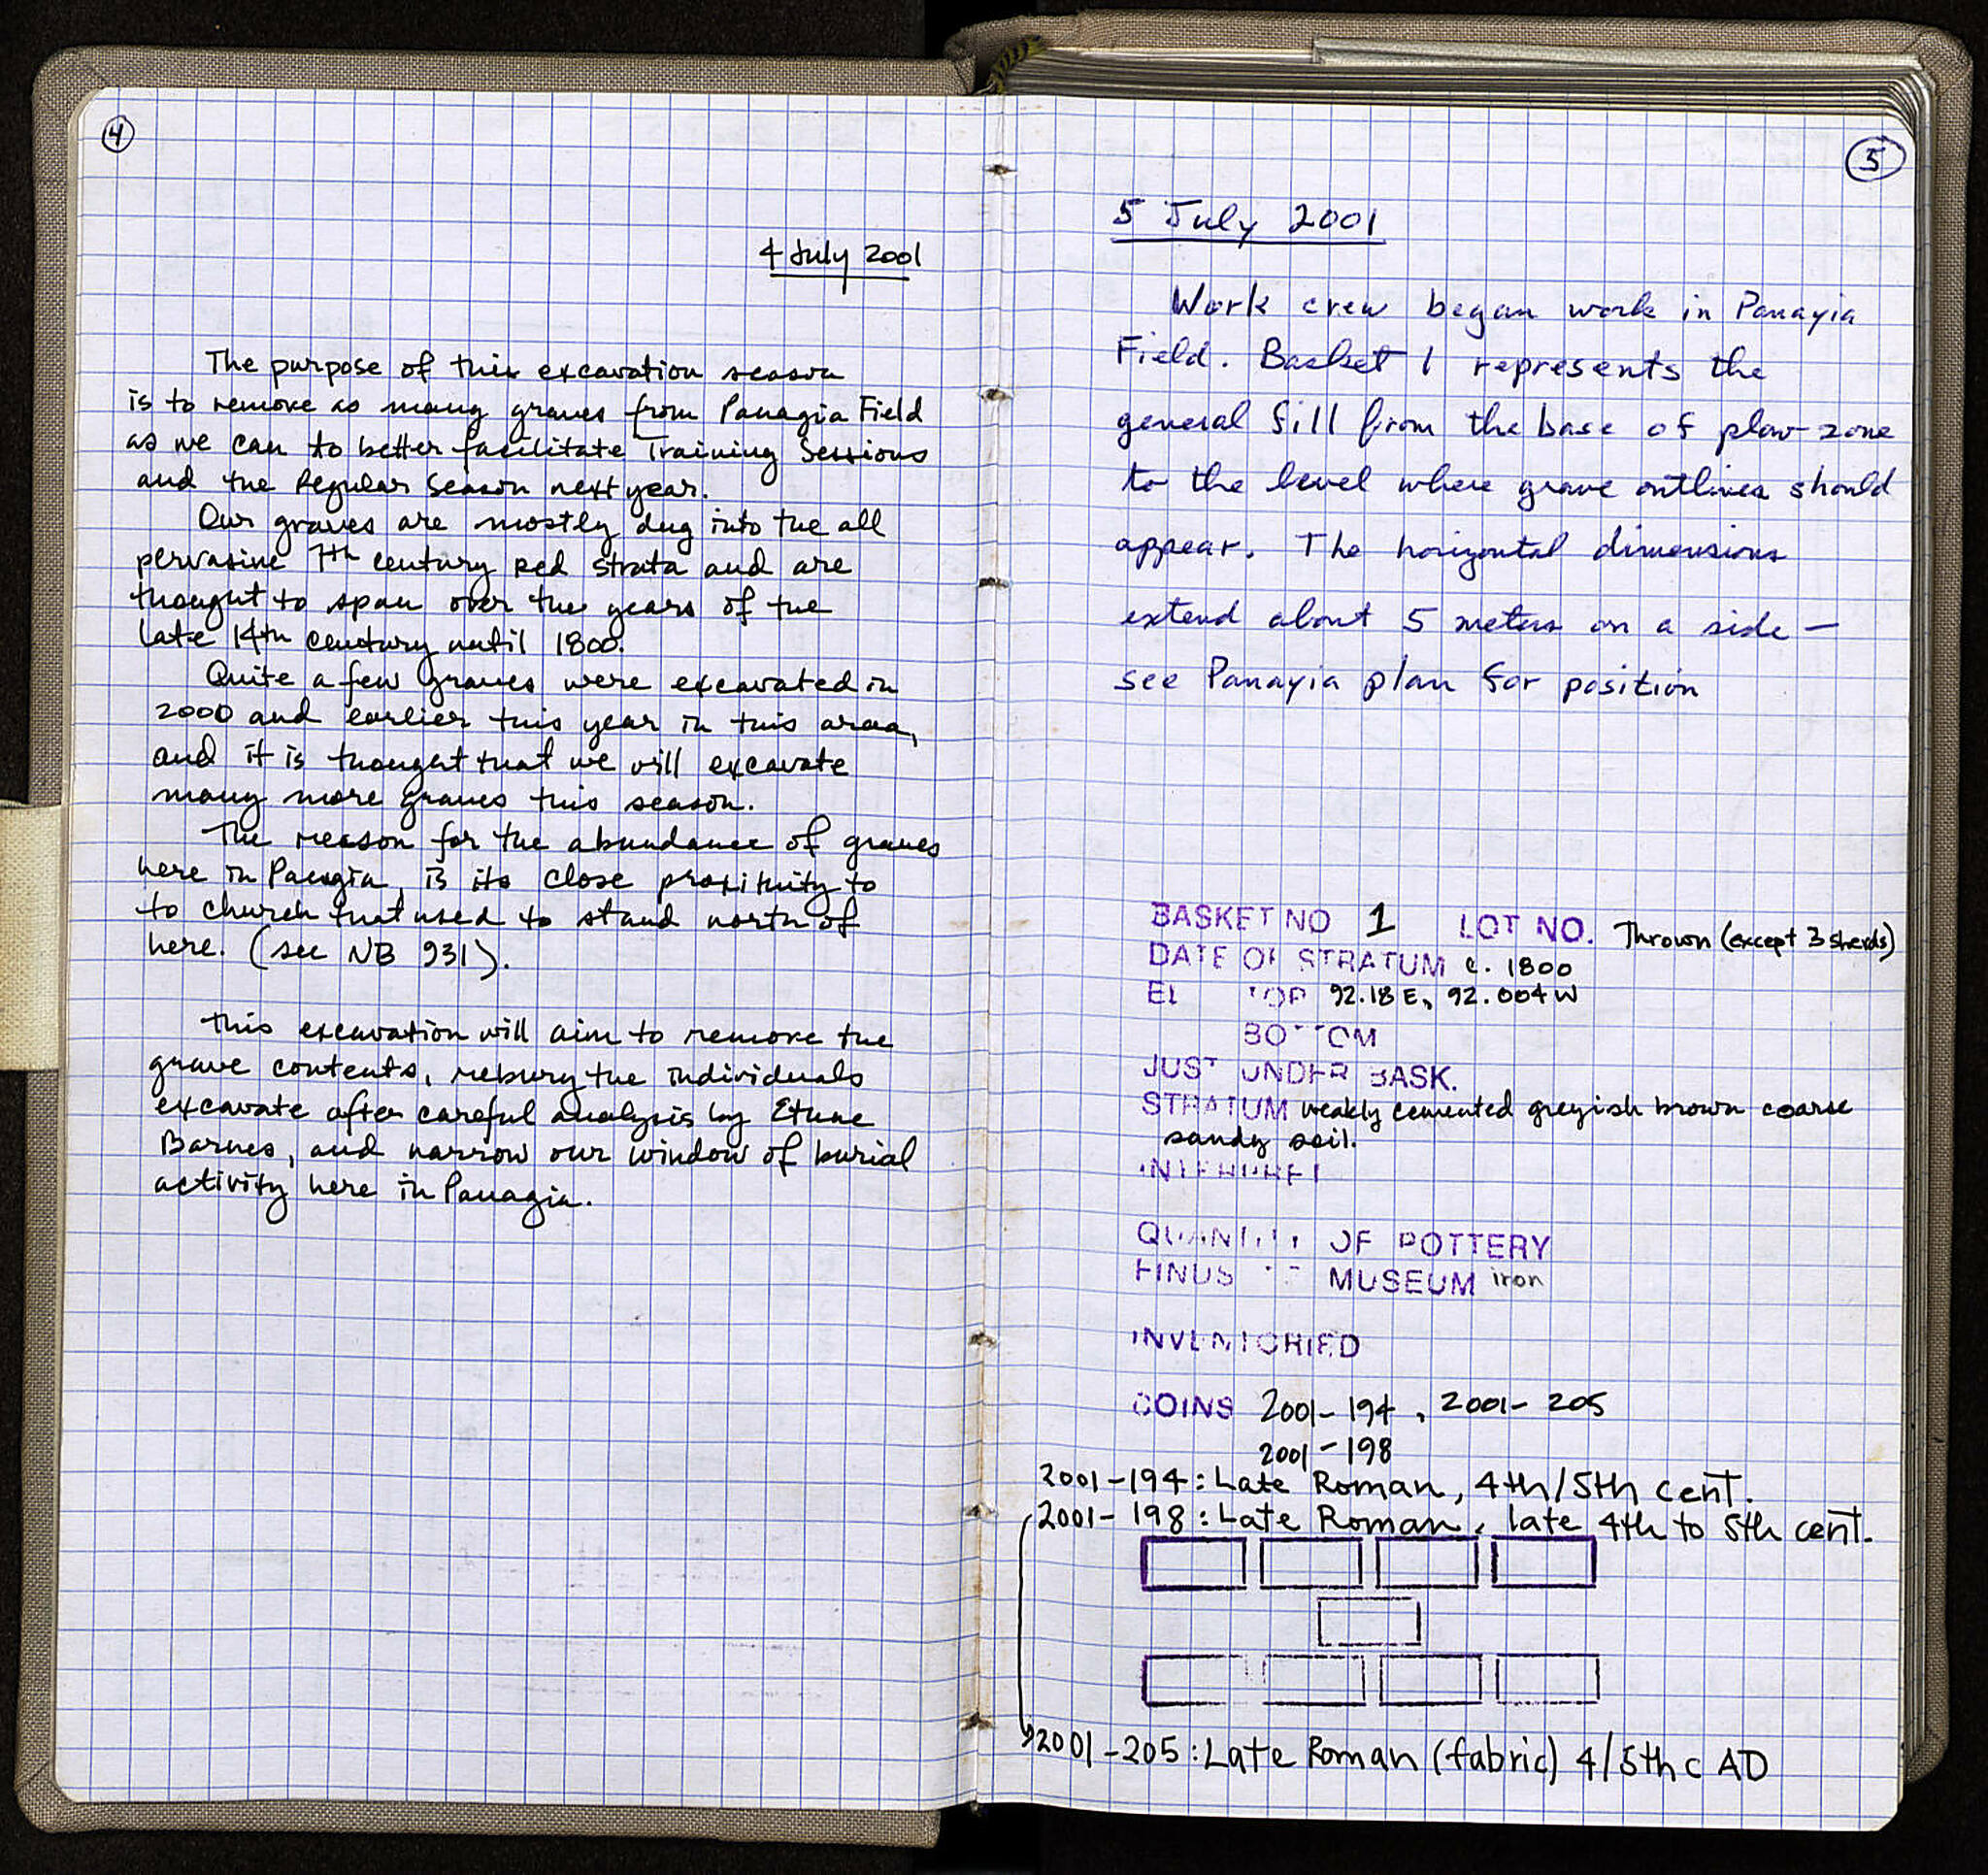 4
4 July 2001
The purpose of this excavation season
is to remove as many graves from Panagia Field
as we can to better facilitate Training Sessions
and the Regular Season next year.
Our graves are mostly dug into the all
pervasive 7th century red strata and are
thought to span over the years of the
late 14th century until 1800.
Quite a few graves were excavated in
2000 and earlier this year in this area,
and it is thought that we will excavate
many more graves this season.
The reason for the abundance of graves
here in Panagia, is its close proximity to
to church that used to stand north of
here. (see NB 931).
This excavation will aim to remove the
grave contents, rebury the individuals
excavate after careful analysis by Ethne
Barnes, and narrow our window of burial
activity here in Panagia.
5
5 July 2001
Work crew began work in Panayia
Field. Basket 1 represents the
general fill from the base of plow zone
to the level where grave outlines should
appear. The horizontal dimensions
extend about 5 meters on a side —
see Panayia plan for position
BASKET NO 1 LOT NO. Thrown (except 3 sherds)
DATE OF STRATUM c. 1800
EL TOP 92.18 E, 92.004 W
BOTTOM
JUST UNDER BASK.
STRATUM weakly cemented greyish brown coarse
sandy soil.
INTERPRET
QUANTITY OF POTTERY
FINDS MUSEUM iron
INVENTORIED
COINS 2001-194, 2001-205
2001-198
2001-194: Late Roman, 4th/5th cent.
2001-198: Late Roman, late 4th to 5th cent.
2001-205: Late Roman (fabric) 4/5th c AD